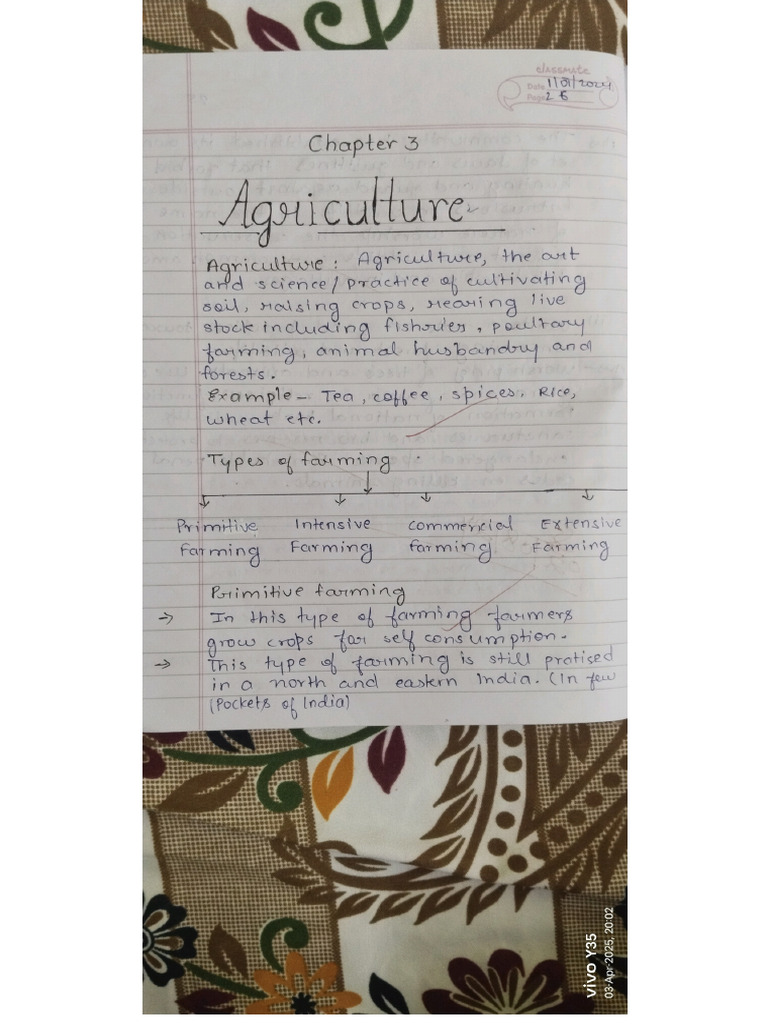 classmate
Date 11/01/2024
Page 26
Chapter 3
Agriculture
Agriculture : Agriculture, the art
and science/practice of cultivating
soil, raising crops, rearing live
stock including fisheries, poultary
farming, animal husbandry and
forests.
Example - Tea, coffee, spices, Rice,
wheat etc.
Types of farming
Primitive Intensive commercial Extensive
Farming Farming Farming Farming
Primitive farming
→ In this type of farming farmers
grow crops for self consumption.
→ This type of farming is still pratised
in a north and eastern India. (In few
(Pockets of India)
vivo Y35
03-Apr-2025, 20:02